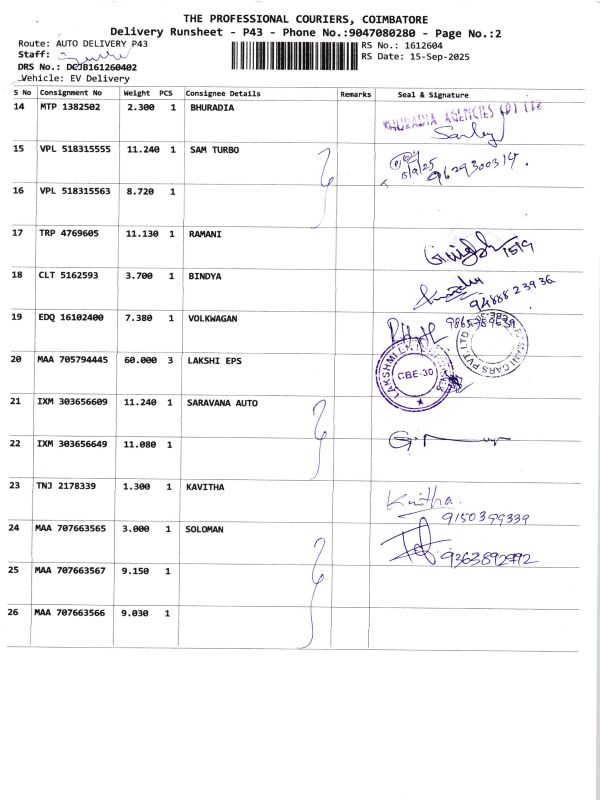 THE PROFESSIONAL COURIERS, COIMBATORE
Delivery Runsheet - P43 - Phone No.:9047080280 - Page No.:2
Route: AUTO DELIVERY P43
RS No.: 1612604
Staff:
RS Date: 15-Sep-2025
DRS No.: DCJB161260402
Vehicle: EV Delivery
S No Consignment No Weight PCS Consignee Details Remarks Seal & Signature
14 MTP 1382502 2.300 1 BHURADIA
BHURADIA AGENCIES (P) LTD
15 VPL 518315555 11.240 1 SAM TURBO
15/9/25 9629300314.
16 VPL 518315563 8.720 1
17 TRP 4769605 11.130 1 RAMANI
15/9
18 CLT 5162593 3.700 1 BINDYA
9488823936
19 EDQ 16102400 7.380 1 VOLKWAGAN
20 MAA 705794445 60.000 3 LAKSHI EPS
LAKSHMI CBE-30
RAMANI CARS PVT. LTD
21 IXM 303656609 11.240 1 SARAVANA AUTO
22 IXM 303656649 11.080 1
23 TNJ 2178339 1.300 1 KAVITHA
Kavitha.
9150399339
24 MAA 707663565 3.000 1 SOLOMAN
25 MAA 707663567 9.150 1
26 MAA 707663566 9.030 1